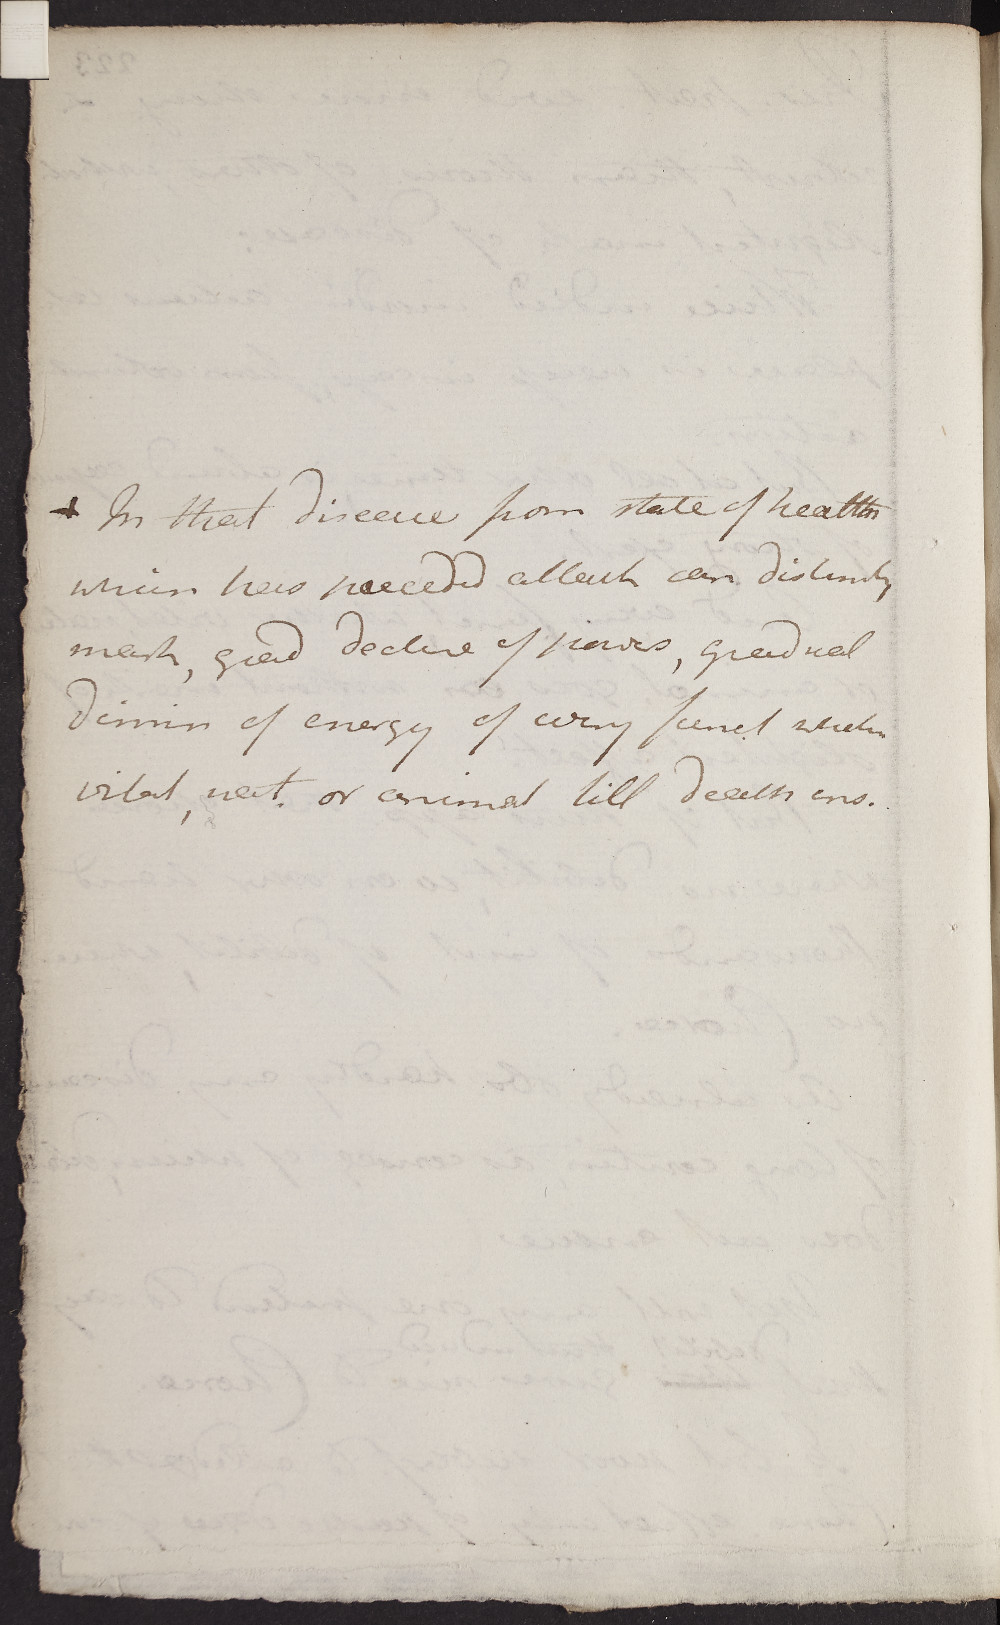 + In that disease from state of health
which has preceded attack can distinctly
mark, grad decline of powers, gradual
dimin of energy of every funct whether
vital, nat. or animal till death ens.